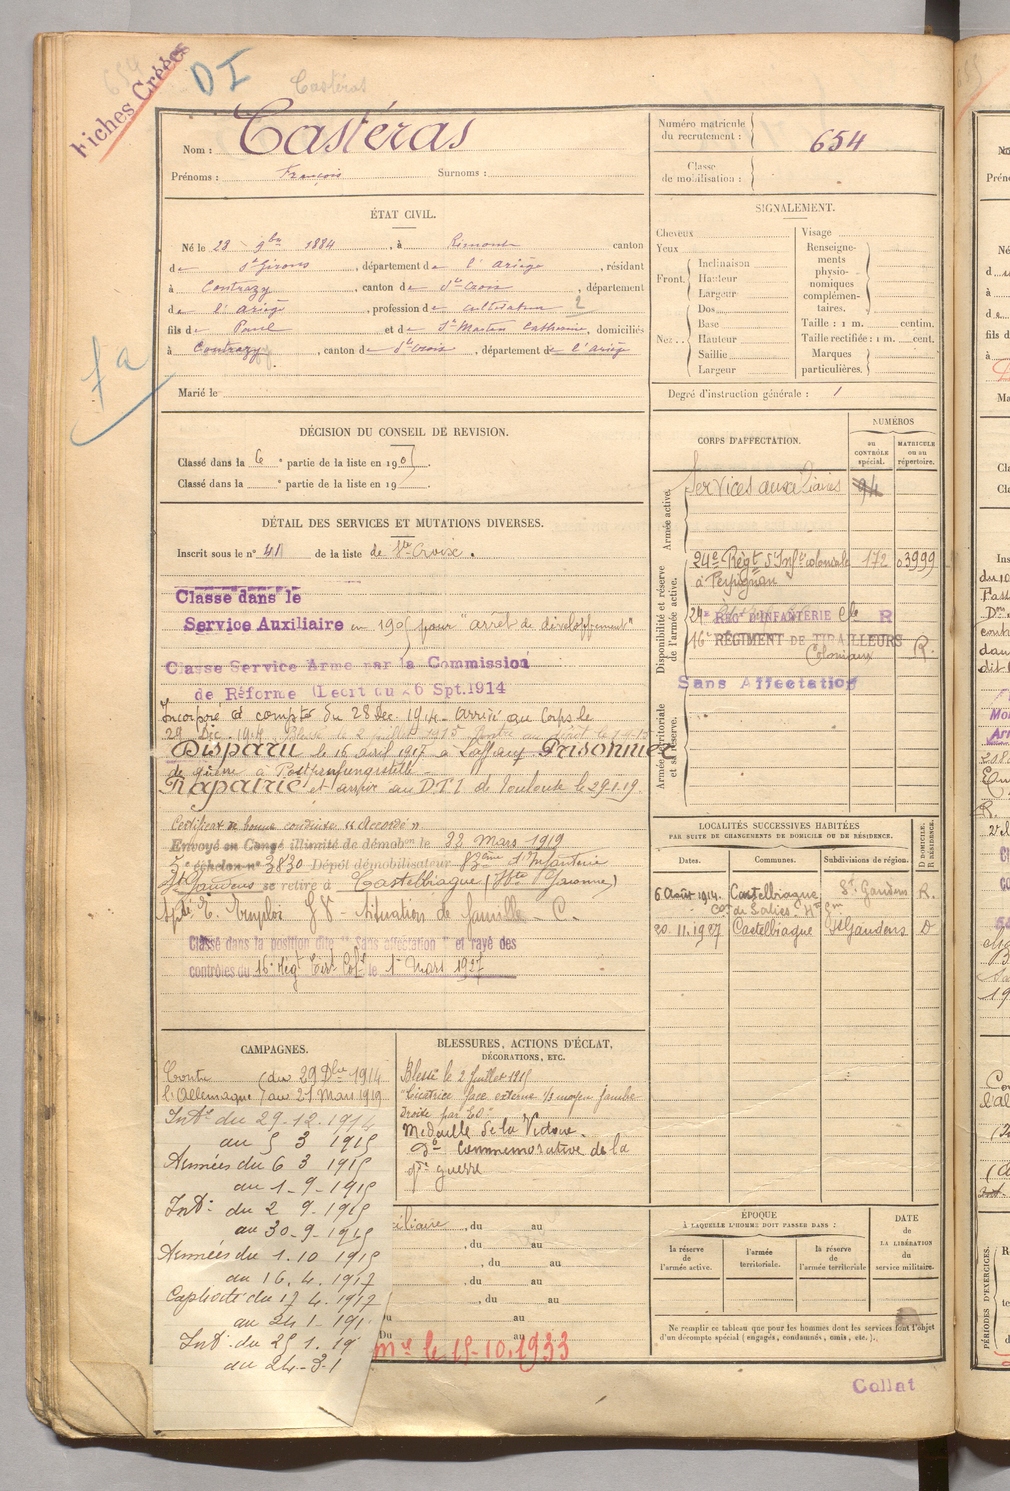 Fiches Créées
D I
Castéras
Nom : Castéras
Prénoms : François Surnoms :
Numéro matricule du recrutement : 654
Classe de mobilisation :
ÉTAT CIVIL.
Né le 28 9bre 1884, à Rimont canton
de St Girons, département de l'Ariège, résidant
à Contrazy, canton de Ste Croix, département
de l'Ariège, profession de cultivateur 2
fils de Paul et de St Martin Catherine, domiciliés
à Contrazy, canton de Ste Croix, département de l'Ariège
Marié le
SIGNALEMENT.
Cheveux
Yeux
Front. Inclinaison
Hauteur
Largeur
Nez.. Dos
Base
Hauteur
Saillie
Largeur
Visage
Renseignements physionomiques complémentaires.
Taille : 1 m. centim.
Taille rectifiée : 1 m. cent.
Marques particulières.
Degré d'instruction générale : 1
DÉCISION DU CONSEIL DE REVISION.
Classé dans la 6e partie de la liste en 1905.
Classé dans la e partie de la liste en 19 .
DÉTAIL DES SERVICES ET MUTATIONS DIVERSES.
Inscrit sous le n° 41 de la liste de Ste Croix.
Classé dans le
Service Auxiliaire en 1905 pour "arrêt de développement"
Classé Service Armé par la Commission
de Réforme (Décrit du 26 Spt.1914
Incorporé à compter du 28 Dec. 1914. Arrivé au Corps le
29 Dec. 1914. Blessé le 2 juillet 1915
Disparu le 16 avril 1917 à Laffaux Prisonnier
de guerre à
Rapatrié et arrivé au D.T.I de Toulouse le 29.1.19.
Certificat de bonne conduite "Accordé"
Envoyé en Congé illimité de démobon le 22 Mars 1919
3e échelon n° 3830 Dépôt démobilisateur 83ème d'Infanterie
St Gaudens se retire à Castelbiague (Hte Garonne)
Situation de famille - C.
Classé dans la position dite "Sans affectation" et rayé des
contrôles du 16e Régt Tirs Colx le 1er Mars 1927
CORPS D'AFFECTATION.
NUMÉROS
au CONTRÔLE spécial.
MATRICULE ou au répertoire.
Armée active.
Services auxiliaires 94
Disponibilité et réserve de l'armée active.
24e Régt d'Infie coloniale 172 03999
à Perpignan
24e REGt D'INFANTERIE Cle R
16e RÉGIMENT DE TIRAILLEURS R.
Coloniaux
Sans Affectation
Armée territoriale et sa réserve.
LOCALITÉS SUCCESSIVES HABITÉES
PAR SUITE DE CHANGEMENTS DE DOMICILE OU DE RÉSIDENCE.
Dates. Communes. Subdivisions de région. D DOMICILE. R RÉSIDENCE.
6 Août 1914. Castelbiague St Gaudens R.
con de Salies. Hte Gne
20.11.1927 Castelbiague St Gaudens D
CAMPAGNES.
Contre (du 29 Dbre 1914
l'Allemagne (au 21 Mars 1919
Intr du 29.12.1914
au 5 3 1915
Armées du 6 3 1915
au 1-9-1915
Intr du 2 9.1915
au 30-9-1915
Armées du 1.10 1915
au 16.4.1917
Captivité du 17 4.1917
au 24 1.191
Intr du 25 1.19
au 24-3-1
BLESSURES, ACTIONS D'ÉCLAT,
DÉCORATIONS, ETC.
Blessé le 2 Juillet 1915
Cicatrice face externe 1/3 moyen jambe
droite par
Médaille de la Victoire.
do Commémorative de la
gde guerre
xiliaire, du au
, du au
, du au
, du au
, du au
Du au
Du au
le 15-10.1933
ÉPOQUE
À LAQUELLE L'HOMME DOIT PASSER DANS :
la réserve de l'armée active.
l'armée territoriale.
la réserve de l'armée territoriale
DATE de LA LIBÉRATION du service militaire.
Ne remplir ce tableau que pour les hommes dont les services font l'objet
d'un décompte spécial (engagés, condamnés, omis, etc.).
Collat
PÉRIODES D'EXERCICES.